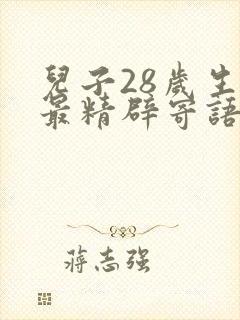 兒子28歲生
最精辟寄語
蔣志强